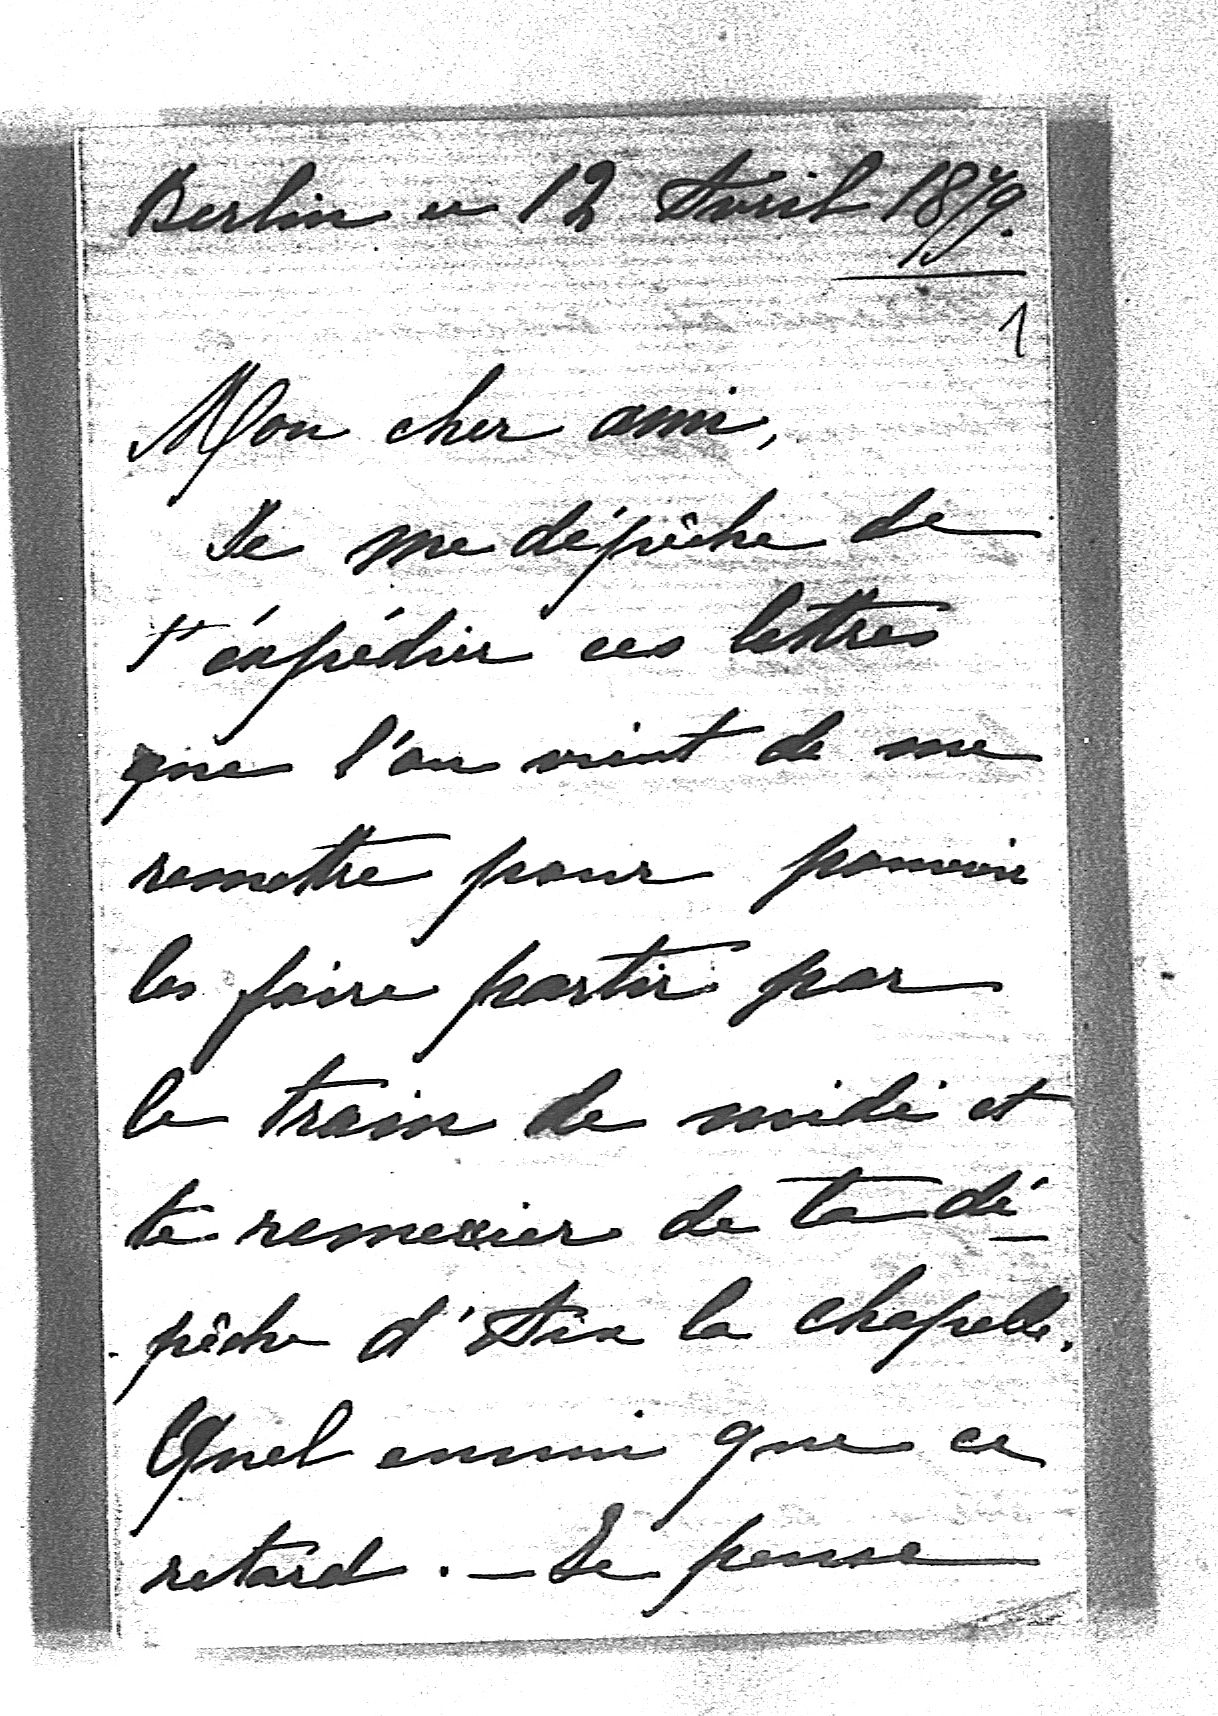 Berlin ce 12 Avril 1879.
1
Mon cher ami,
Je me dépêche de
t'éxpédier ces lettres
que l'on vient de me
remettre pour pouvoir
les faire partir par
le train de midi et
te remercier de ta dé-
pêche d'Aix la chapelle.
Quel ennui que ce
retard. — Je pense